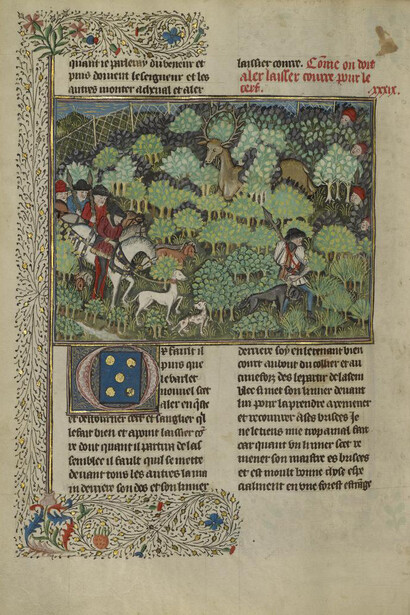 quant le parlemt du veneur et
puis doivent le seigneur et les
autres monter a cheval et aler
laissier courre. Cõme on doit
aler laissier courre pour le
cerf. .xxxix.
Or fault il
puis que
le varlet
saet
aler en q̃ste
et destourner cerf et sanglier q̃l
le face bien et apoint laissier cõ
re donc quant il partira de las
semblee il fault quil se mette
devant tous les autres la mai
n derriere son dos et son limer
derriere soy en le tenant bien
court autour du collier et au
les departir de lasem
blee si met son limer devant
luy pour la prendre a remener
et recouvrer a ses brisees Je
ne le tieus mie trop a mal fait
car quant un limer scet re
mener son maistre es brisees
et est moult bonne chose espe
cialment en une forest estrãge